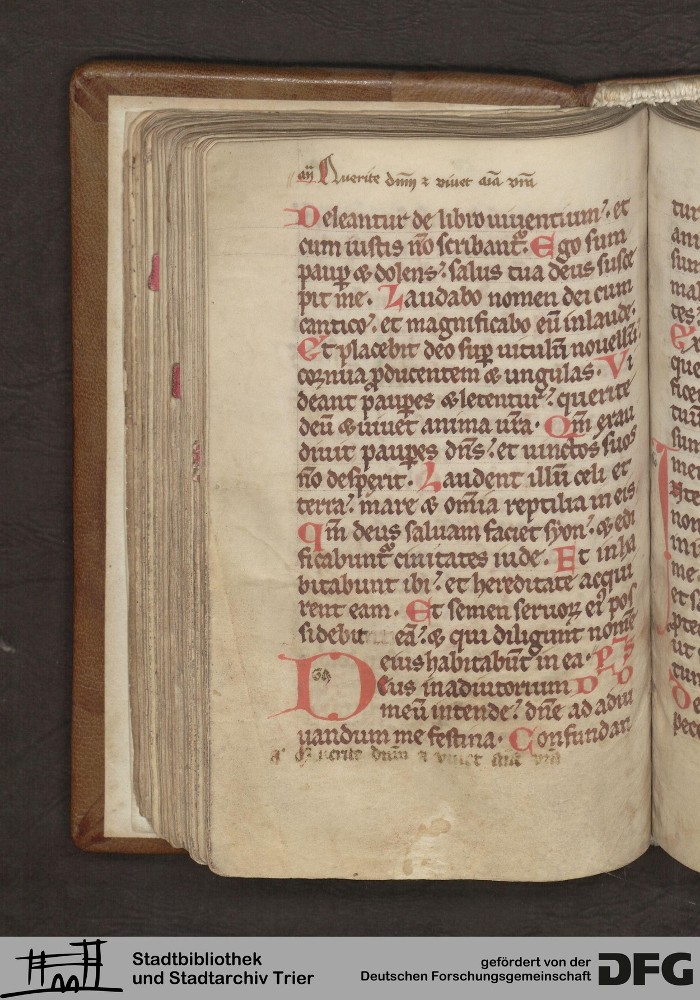 añ Querite dnm ⁊ viuet aīa vrā
Deleantur de libro viuentium: et
cum iustis nō scribant᷑. Ego sum
paup ⁊ dolens: salus tua deus susce
pit me. Laudabo nomen dei cum
cantico: et magnificabo eū in laude.
Et placebit deo sup uitulū nouellū:
cornua pducentem ⁊ ungulas. Vi
deant paupes ⁊ letentur: querite
deū ⁊ uiuet anima ura. Qm̄ exau
diuit paupes dn̄s: et uinctos suos
nō despexit. Laudent illū celi et
terra: mare ⁊ om̄ia reptilia in eis
Qm̄ deus saluam faciet syon: ⁊ edi
ficabunt᷑ ciuitates iude. Et inha
bitabunt ibi: et hereditate acqui
rent eam. Et semen seruoꝝ eiꝰ pos
sidebit eā: ⁊ qui diligunt nomē
eius habitabūt in ea. Ps
Deus in adiutorium DD
meū intende: dn̄e ad adiu
uandum me festina. Confundan
a Querite dnm ⁊ viuet aīa vrā
tur
ani
sum
mal
tes
que
ficer
tuū
sum
meu
non
me
et s
ut
tum
De
pecc
Stadtbibliothek
und Stadtarchiv Trier
gefördert von der
Deutschen Forschungsgemeinschaft
DFG